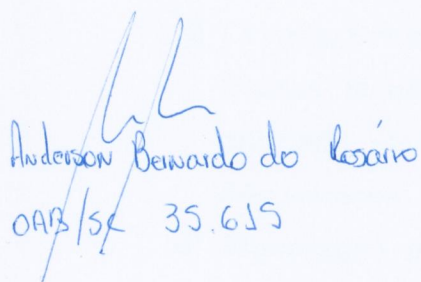 Anderson Bernardo do Rosário
OAB/SC 35.615